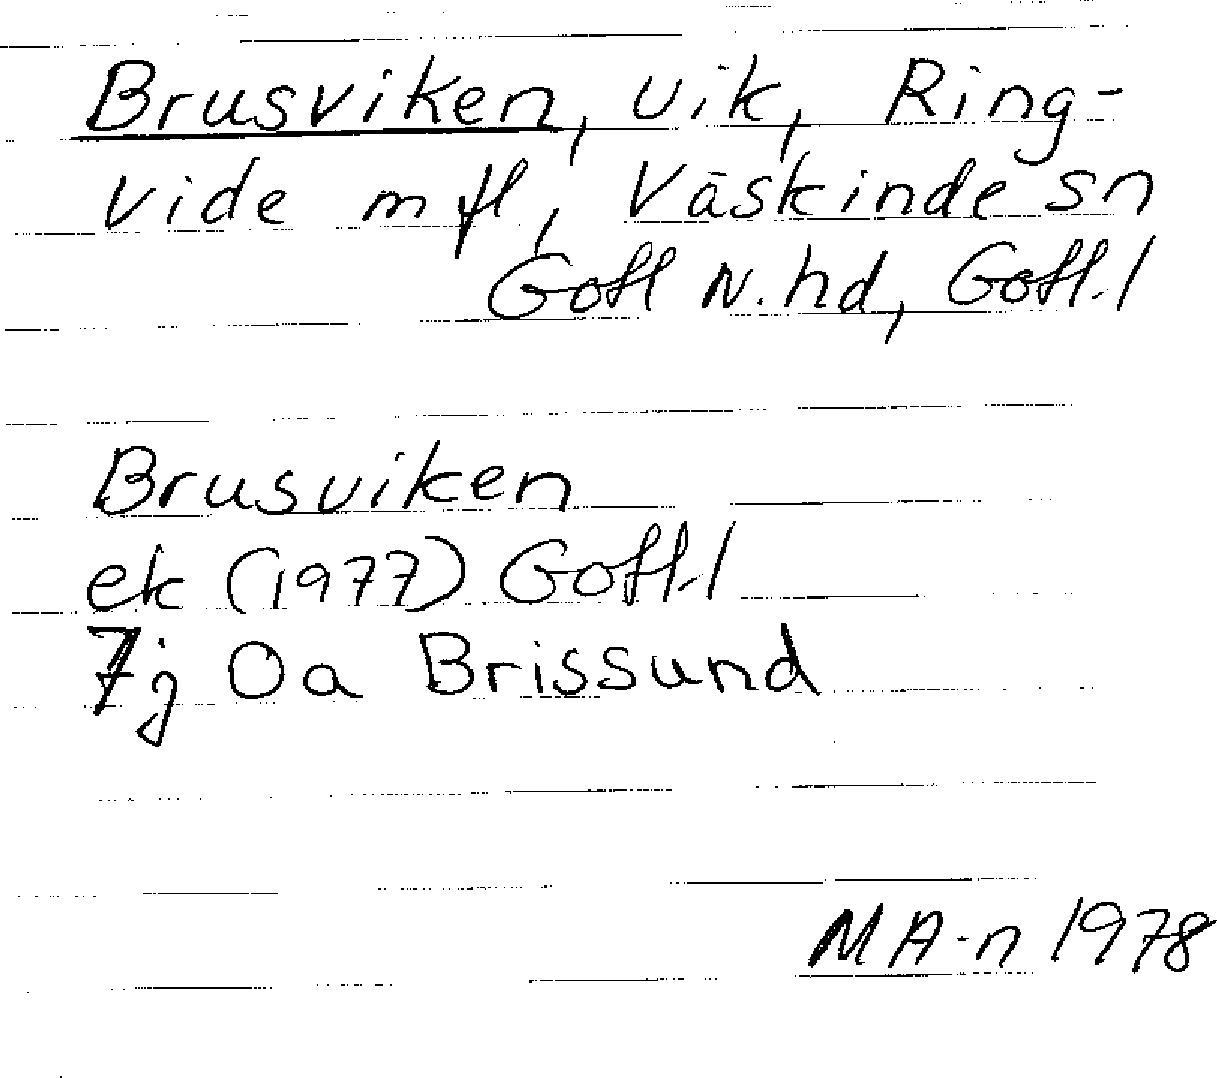 Brusviken, vik, Ring-
vide m fl, Väskinde sn
Gotl N. hd, Gotl. l
Brusviken
ek (1977) Gotl. l
7j 0a Brissund
MA-n 1978